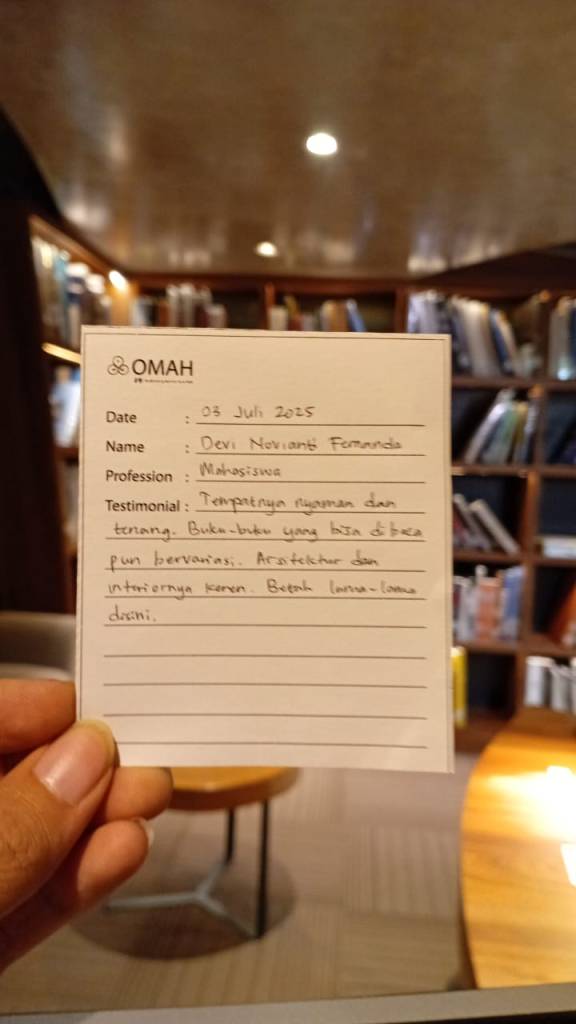 OMAH
Date : 03 Juli 2025
Name : Devi Novianti Fernanda
Profession : Mahasiswa
Testimonial : Tempatnya nyaman dan
tenang. Buku-buku yang bisa di baca
pun bervariasi. Arsitektur dan
interiornya keren. Betah lama-lama
disini.